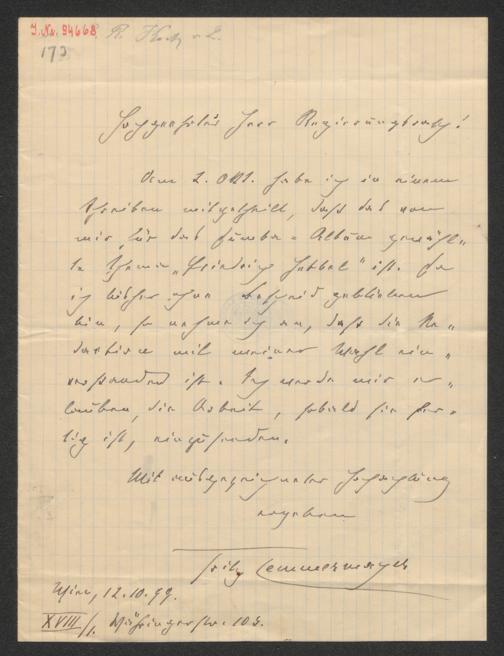 I. Nr. 94668
173
Hochgeehrter Herr Regierungsrath!
Am 2. Okt. habe ich in einem
Schreiben mitgetheilt, daß das von
mir für das Zumbu-Album gewähl-
te Thema „Friedrich Hebbel" ist. Da
ich bisher ohne Bescheid geblieben
bin, so nehme ich an, daß die Re-
daktion mit meiner Wahl ein-
verstanden ist. Ich werde mir er-
lauben, die Arbeit, sobald sie fer-
tig ist, einzusenden.
Mit ausgezeichneter Hochachtung
ergeben
Fritz Lemmermayer
Wien, 12.10.99.
XVIII/1. Währingerstr. 103.